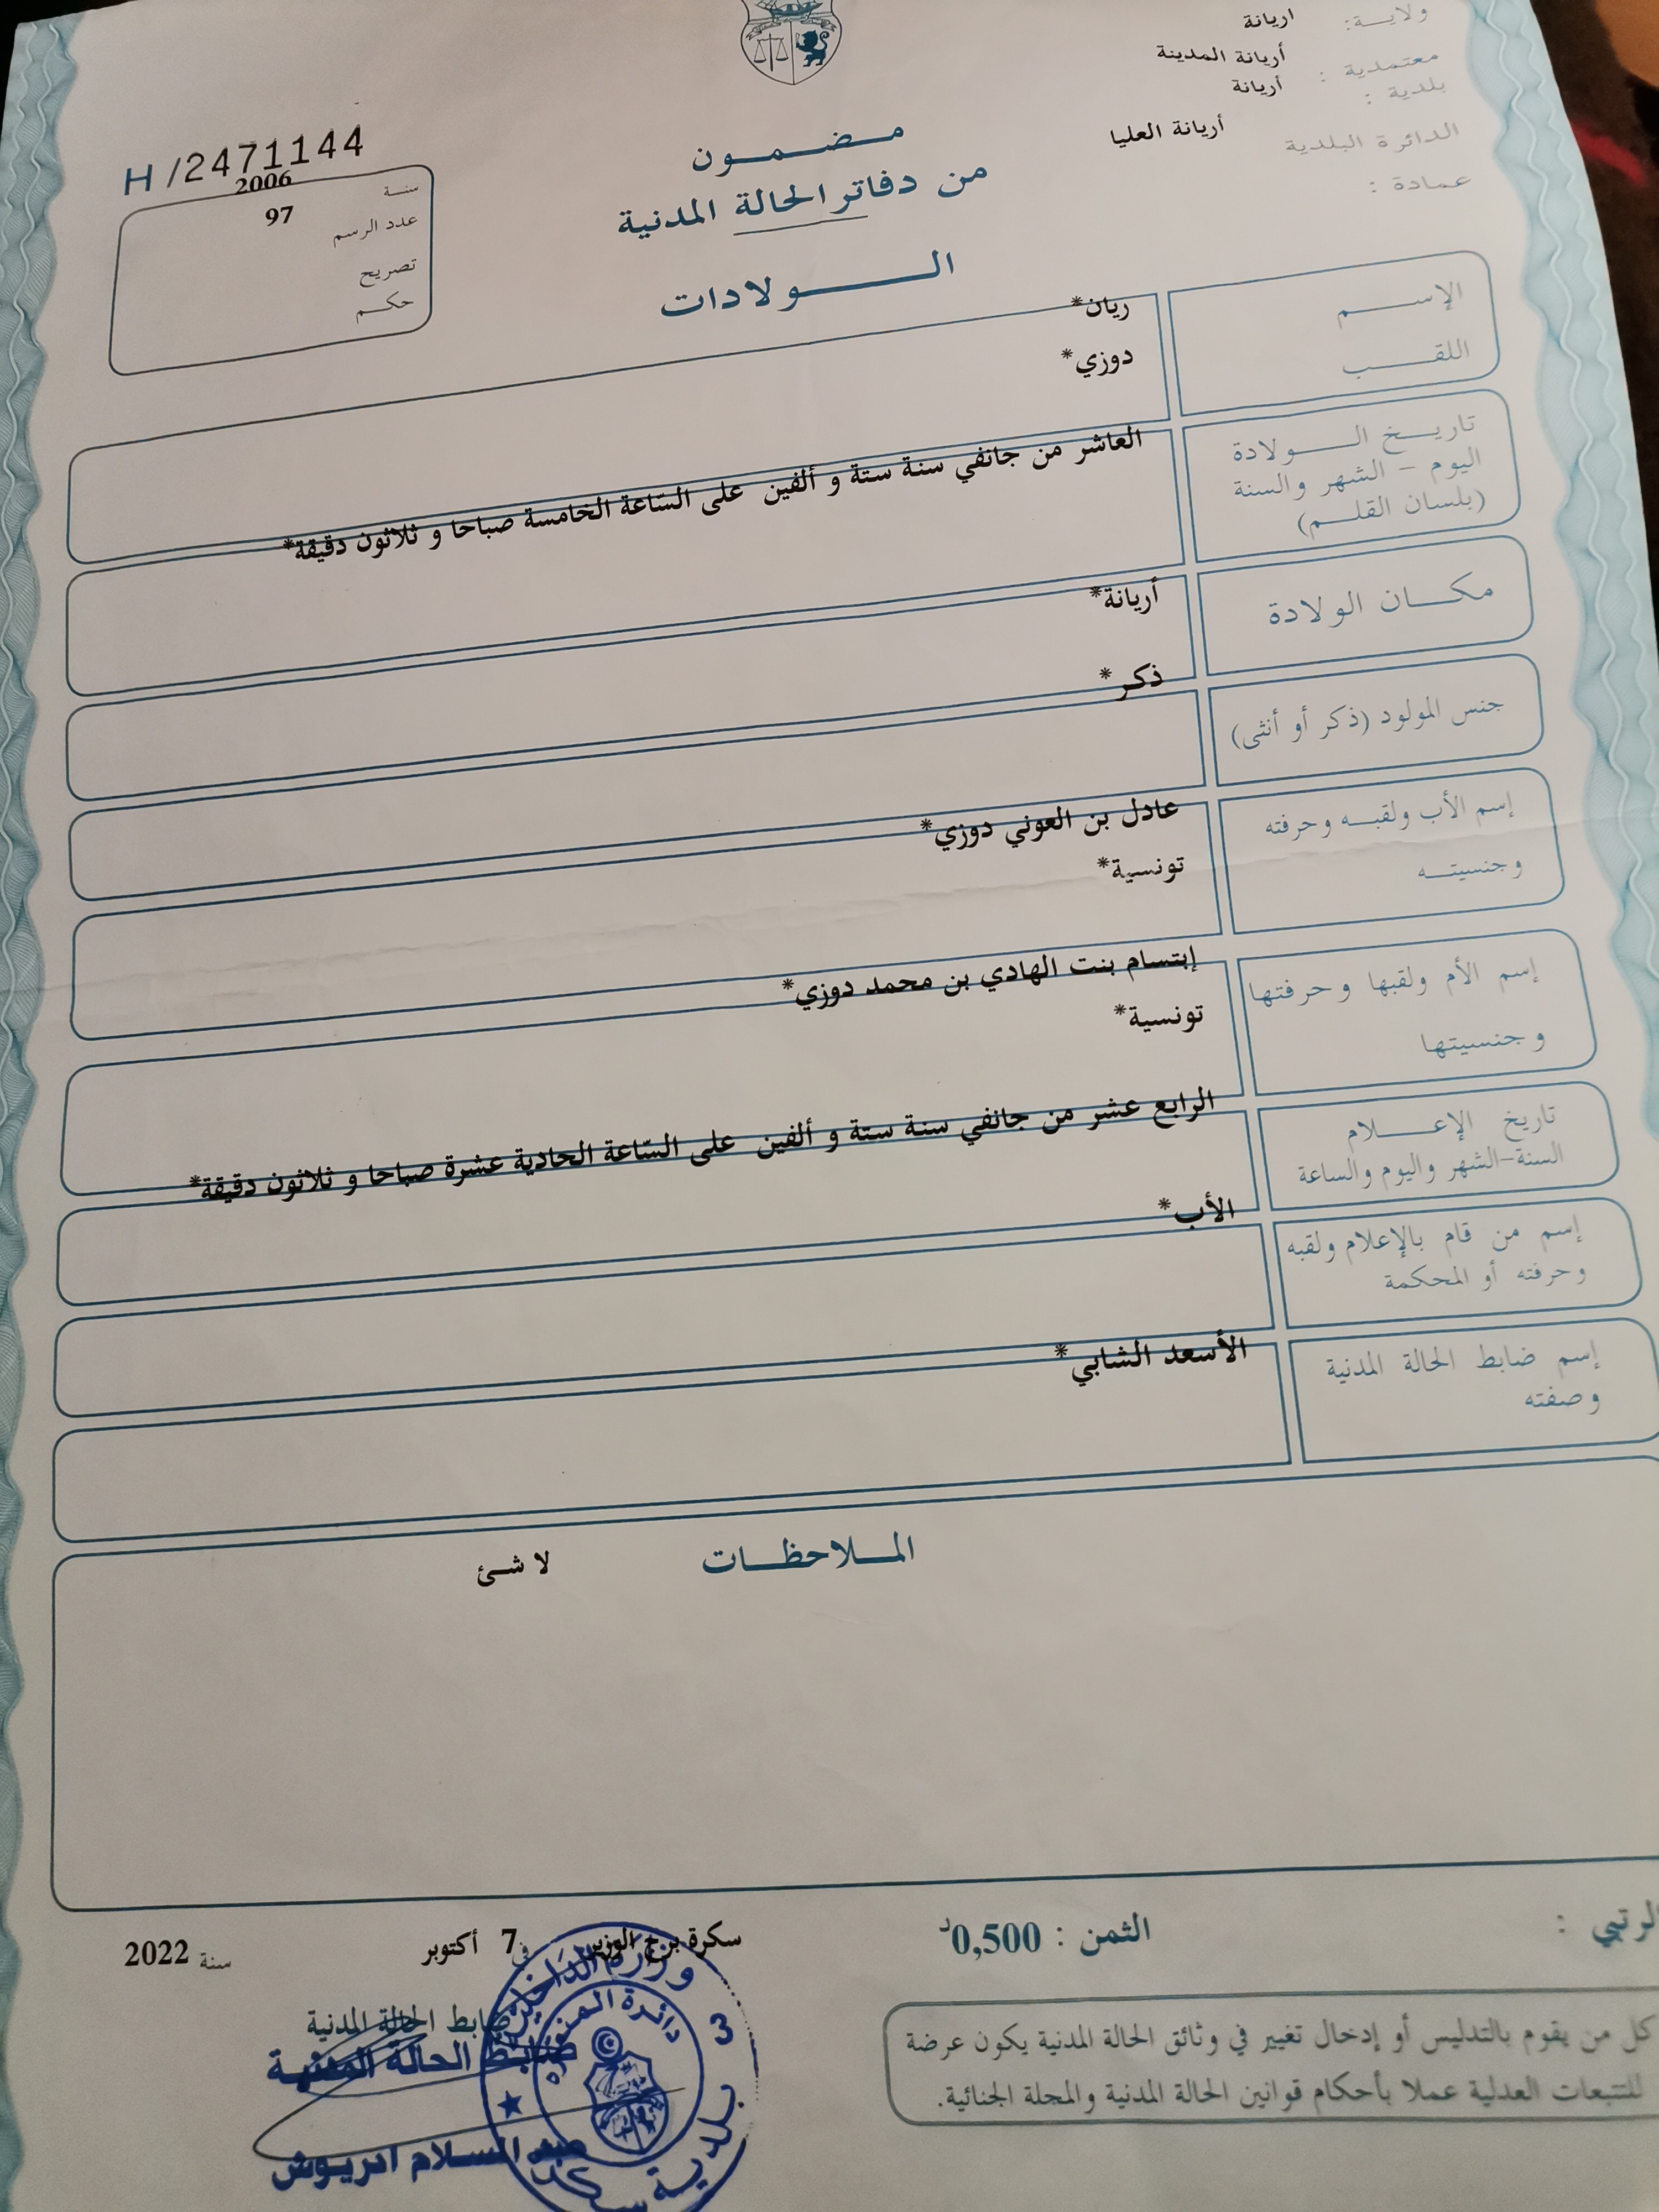 ولاية: اريانة
معتمدية : أريانة المدينة
بلدية : أريانة
الدائرة البلدية أريانة العليا
عمادة :
H/2471144
سنة 2006
عدد الرسم 97
تصريح
حكم
مضمون
من دفاتر الحالة المدنية
الولادات
الإسم ريان*
اللقب دوزي*
تاريخ الولادة
اليوم - الشهر والسنة
(بلسان القلم)
العاشر من جانفي سنة ستة و ألفين على السّاعة الخامسة صباحا و ثلاثون دقيقة*
مكان الولادة أريانة*
جنس المولود (ذكر أو أنثى) ذكر*
إسم الأب ولقبه وحرفته عادل بن العوني دوزي*
وجنسيته تونسية*
إسم الأم ولقبها وحرفتها إبتسام بنت الهادي بن محمد دوزي*
وجنسيتها تونسية*
تاريخ الإعلام
السنة-الشهر واليوم والساعة
الرابع عشر من جانفي سنة ستة و ألفين على السّاعة الحادية عشرة صباحا و ثلاثون دقيقة*
إسم من قام بالإعلام ولقبه
وحرفته أو المحكمة
الأب*
إسم ضابط الحالة المدنية
وصفته
الأسعد الشابي*
الملاحظات
لا شئ
الرتبي :
الثمن : 0,500د
سكرة برج الوزير في 7 أكتوبر سنة 2022
ضابط الحالة المدنية
ضابط الحالة المدنية
عبد السلام ادريوش
وزارة الداخلية
بلدية سكرة
3
كل من يقوم بالتدليس أو إدخال تغيير في وثائق الحالة المدنية يكون عرضة
للتتبعات العدلية عملا بأحكام قوانين الحالة المدنية والمجلة الجنائية.